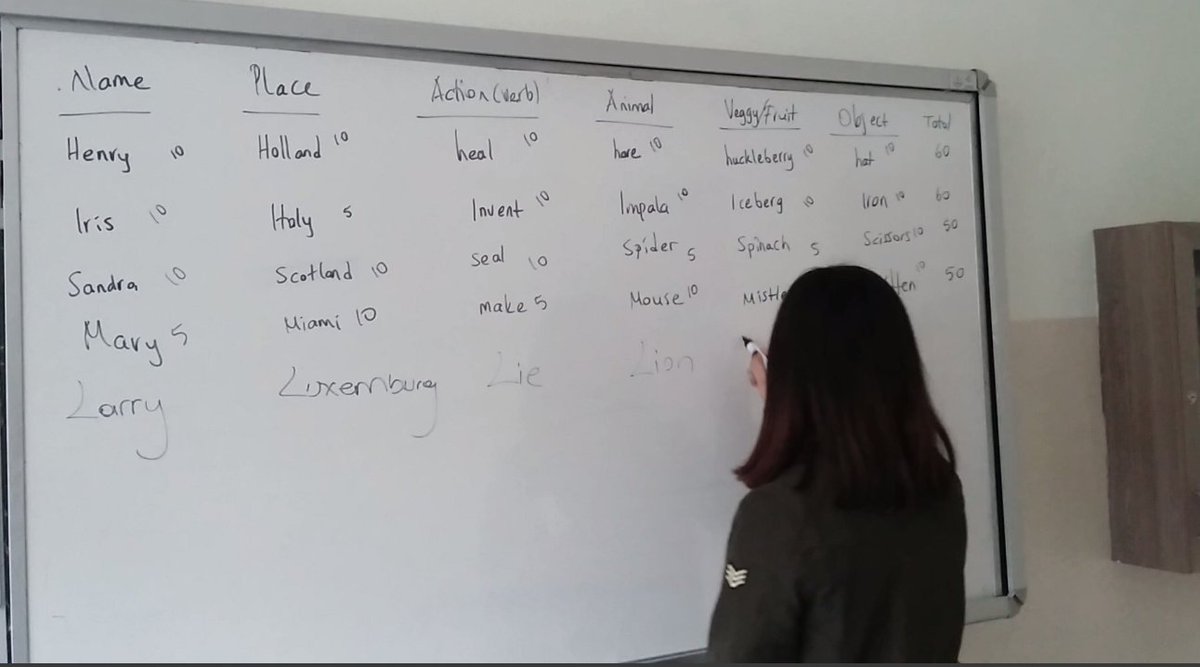 Name Place Action(verb) Animal Veggy/Fruit Object Total
Henry 10 Holland 10 heal 10 hare 10 huckleberry 10 hat 10 60
Iris 10 Italy 5 Invent 10 Impala 10 Iceberg 10 Iron 10 60
Sandra 10 Scotland 10 seal 10 Spider 5 Spinach 5 Scissors 10 50
Mary 5 Miami 10 make 5 Mouse 10 10 50
Larry Luxemburg Lie Lion